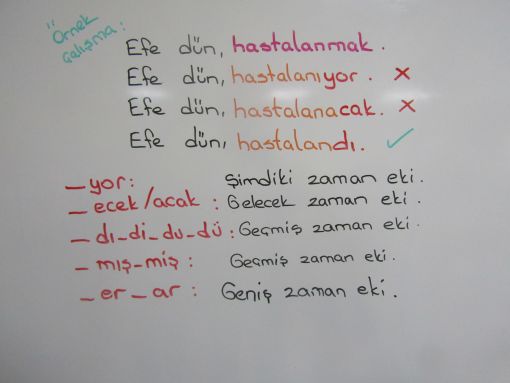 "Örnek
çalışma:
Efe dün, hastalanmak.
Efe dün, hastalanıyor. ×
Efe dün, hastalanacak. ×
Efe dün, hastalandı. ✓
_yor: Şimdiki zaman eki.
_ecek/acak: Gelecek zaman eki.
_dı_di_du_dü: Geçmiş zaman eki.
_mış_miş: Geçmiş zaman eki.
_er_ar: Geniş zaman eki.